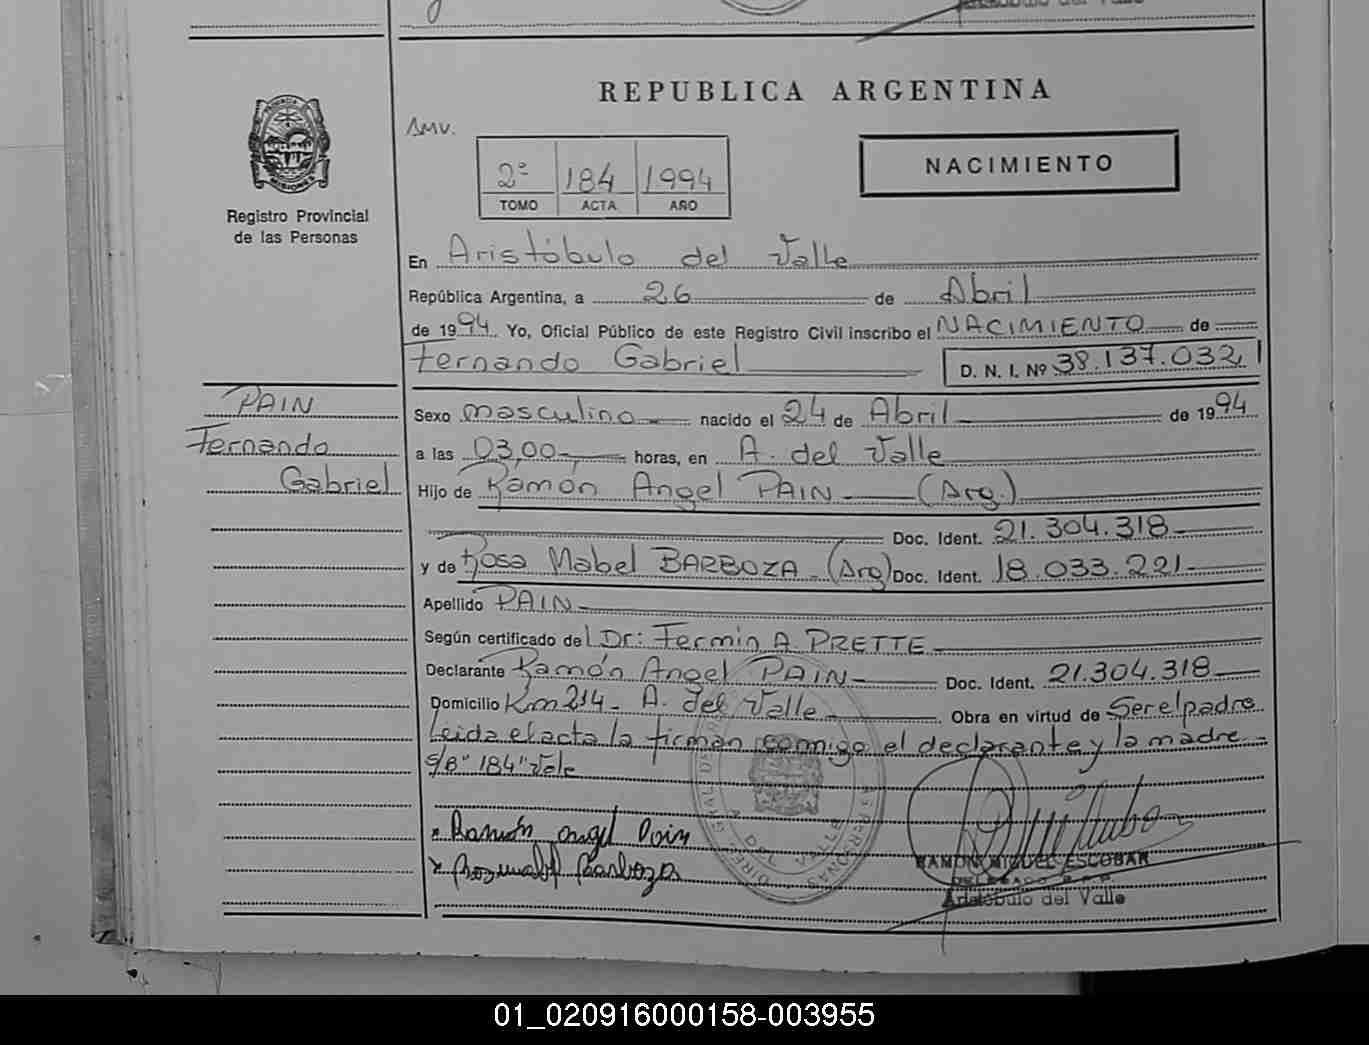 REPUBLICA ARGENTINA
PROVINCIA DE
MISIONES
Registro Provincial
de las Personas
SMV.
2º 184 1994
TOMO ACTA AÑO
NACIMIENTO
En Aristóbulo del Valle
República Argentina, a 26 de Abril
de 1994. Yo, Oficial Público de este Registro Civil inscribo el NACIMIENTO de
Fernando Gabriel D. N. I. Nº 38.137.032
PAIN
Fernando
Gabriel
Sexo masculino nacido el 24 de Abril de 1994
a las 03,00 horas, en A. del Valle
Hijo de Ramón Angel PAIN (Arg.)
Doc. Ident. 21.304.318
y de Rosa Mabel BARBOZA (Arg) Doc. Ident. 18.033.221
Apellido PAIN
Según certificado del Dr: Fermin A PRETTE
Declarante Ramón Angel PAIN Doc. Ident. 21.304.318
Domicilio Km 214 - A. del Valle Obra en virtud de Ser el padre
Leida el acta la firman conmigo el declarante y la madre
S/B" 184" Vale
x Ramón angel Pain
x Barboza
RAMON MIGUEL ESCOBAR
Aristóbulo del Valle
01_020916000158-003955